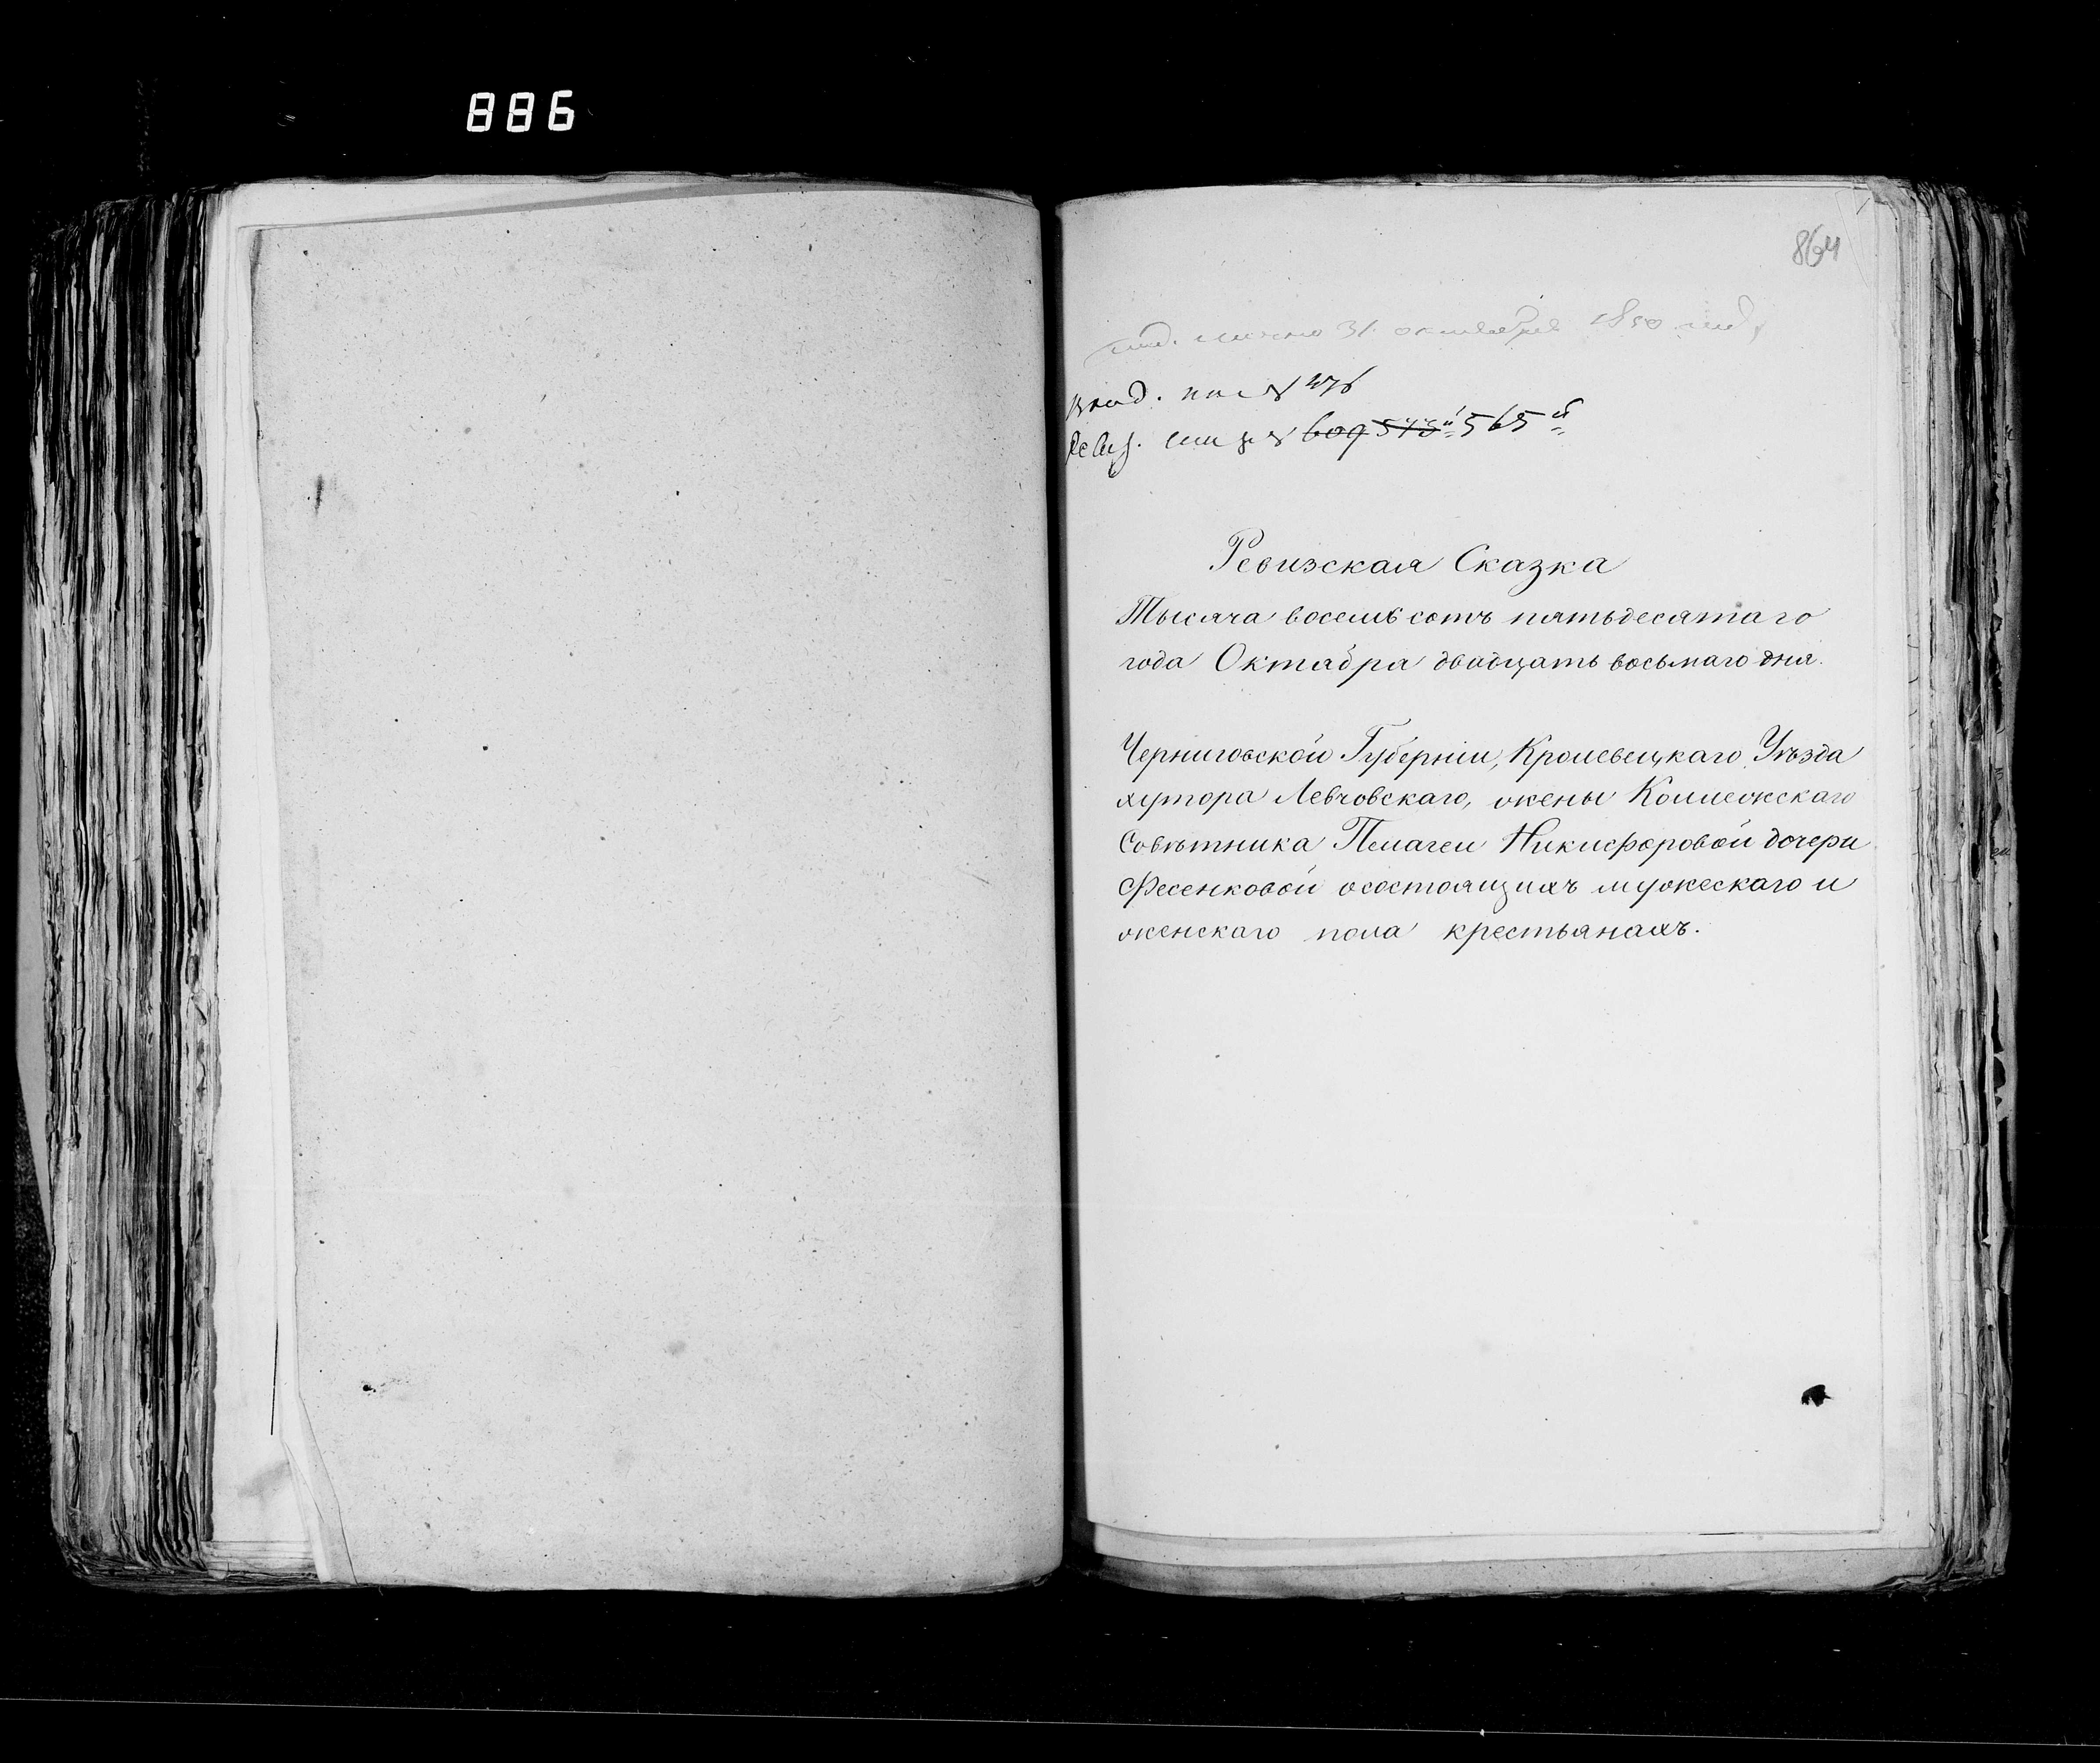 886
864
31 октября 1850
Влад. по № 476
Ревиз. 609 573й 565й
Ревизская Сказка
Тысяча восемъ сотъ пятьдесятаго
года Октабра двадцать восьмаго дня.
Черниговской Губерніи, Кролевецкаго Уѣзда
хутора Левчовскаго, жены Коллежскаго
Совѣтника Пелагеи Никифоровой дочери
Фесенковой осостоящихъ мужескаго и
женскаго пола крестьянахъ.